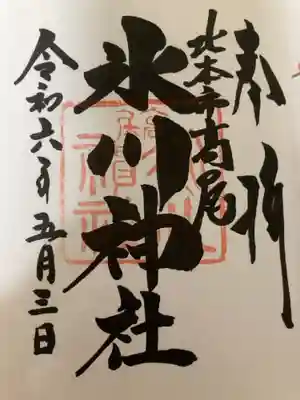 奉拝
北本市高尾
氷川神社
令和六年五月三日